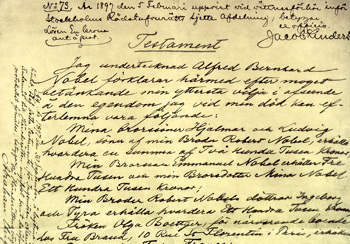 No 73. År 1897 den 5 Februari uppvist vid vittnesförhör inför
Stockholms Rådstufvurätts sjette Afdelning, betygar
ex officio
Jacob
Testament
Jag undertecknad Alfred Bernhard
Nobel förklarar härmed efter moget
betänkande min yttersta vilja i afseende
å den egendom jag vid min död kan ef-
terlemna vara följande:
Mina Brorsöner Hjalmar och Ludvig
Nobel, söner af min Broder Robert Nobel, erhålla
hvardera en summa af Två Hundra Tusen Kronor;
Min Brorson Emmanuel Nobel erhåller Tre
Hundra Tusen och min Brorsdotter Mina Nobel
Ett Hundra Tusen Kronor;
Min Broder Robert Nobels döttrar Ingeborg
och Tyra erhålla hvardera Ett Hundra Tusen
Fröken Olga Boettger, för närvarande boende
hos Fru Brand, 10 Rue St Florentin i Paris, erhåller